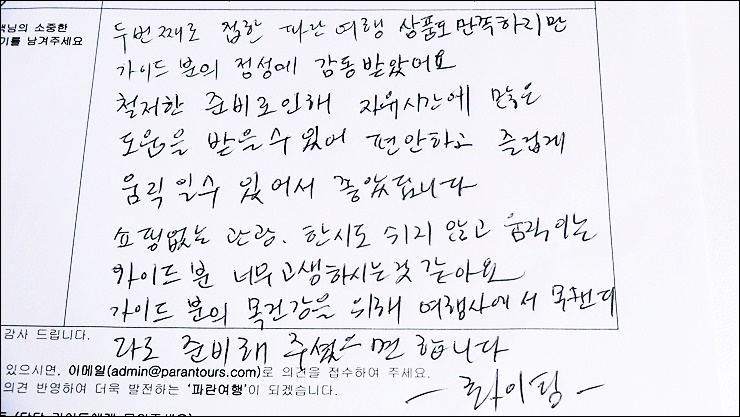 객님의 소중한
기를 남겨주세요
두번째로 접한 파란 여행 상품도 만족하지만
가이드 분의 정성에 감동받았어요
철저한 준비로인해 자유시간에 많은
도움을 받을수 있어 편안하고 즐겁게
움직일수 있어서 좋았답니다
쇼핑없는 관광. 한시도 쉬지 않고 움직이는
가이드 분 너무고생하시는것 같아요
가이드 분의 목건강을 위해 여행사에서 목캔디
라도 준비해 주셨으면 합니다
감사 드립니다.
있으시면, 이메일(admin@parantours.com)로 의견을 접수하여 주세요.
의견 반영하여 더욱 발전하는 '파란여행'이 되겠습니다.
- 화이팅 -